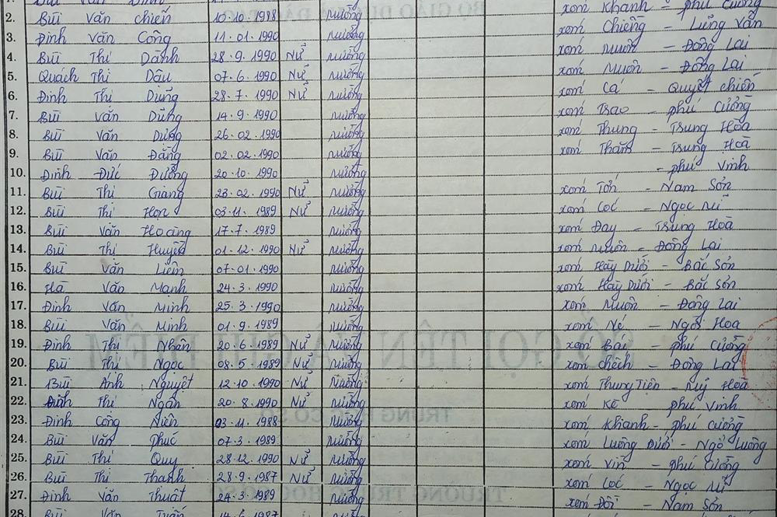 2. Bùi Văn Chiến 10.10.1988 Mường xóm Khanh - Phú Cường
3. Đinh Văn Công 11.01.1990 Mường xóm Chiềng - Lũng Vân
4. Bùi Thị Dành 28.9.1990 Nữ Mường xóm Muôn - Đông Lai
5. Quách Thị Dậu 07.6.1990 Nữ Mường xóm Muôn - Đông Lai
6. Đinh Thị Dung 28.7.1990 Nữ Mường xóm Cá - Quyết Chiến
7. Bùi Văn Dũng 14.9.1990 Mường xóm Trao - Phú Cường
8. Bùi Văn Dũng 26.02.1990 Mường xóm Thung - Trung Hòa
9. Bùi Văn Đăng 02.02.1990 Mường xóm Thăm - Trung Hoà
10. Đinh Đức Đường 20.10.1990 Mường - Phú Vinh
11. Bùi Thị Giang 28.02.1990 Nữ Mường xóm Tớn - Nam Sơn
12. Bùi Thị 03.11.1989 Nữ Mường xóm Cóc - Ngọc Mĩ
13. Bùi Văn Hoàng 17.7.1989 Mường xóm Đay - Trung Hoà
14. Bùi Thị Huyền 01.12.1990 Nữ Mường xóm Muôn - Đông Lai
15. Bùi Văn Liên 07.01.1990 Mường xóm Hày Dưới - Bắc Sơn
16. Hà Văn Mạnh 24.3.1990 Mường xóm Hày Dưới - Bắc Sơn
17. Đinh Văn Minh 25.3.1990 Mường xóm Muôn - Đông Lai
18. Bùi Văn Minh 01.9.1989 Mường xóm
19. Đinh Thị Nhân 20.6.1989 Nữ Mường xóm Bái - Phú Cường
20. Bùi Thị Ngọc 08.5.1989 Nữ Mường xóm Chếch - Đông Lai
21. Bùi Ánh Nguyệt 12.10.1990 Nữ Mường xóm Thung Tiến - Quý Hoà
22. Đinh Thị Ngân 20.8.1990 Nữ Mường xóm Kè - Phú Vinh
23. Đinh Công Niên 03.11.1988 Mường xóm Khanh - Phú Cường
24. Bùi Văn Phúc 07.3.1989 Mường xóm Luông Dưới - Ngổ Luông
25. Bùi Thị Quy 28.12.1990 Nữ Mường xóm Vìn - Phú Cường
26. Bùi Thị Thanh 28.9.1987 Nữ Mường xóm Cóc - Ngọc Mĩ
27. Đinh Văn Thuật 24.3.1989 Mường xóm Đồi - Nam Sơn
28. Bùi Văn Tuấn 14.6.1987 Mường